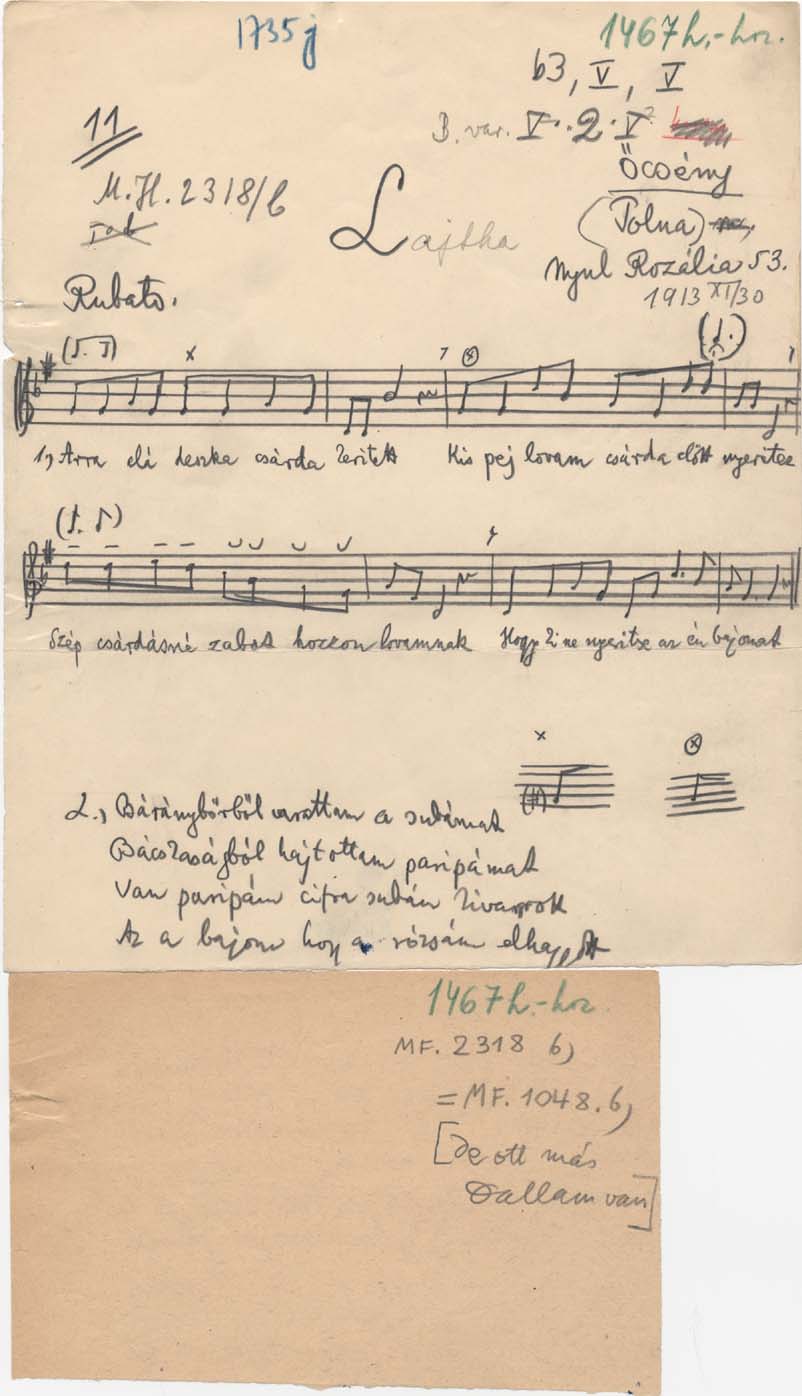 1735j
1467h.-hoz.
b3, V, V
11
B. var. V. 2. V
M.H. 2318/b
Lajtha
Őcsény
(Tolna)
Nyul Rozália 53.
1913 XI/30
Rubato.
1, Arra elá deszka csárda Kis pej lovam csárda előtt nyeritee
Szép csárdásné zabot hozzon lovamnak Hogy ne nyeritse az én bajomat
2., Báránybőrből varattam a subámat
hajtottam paripámat
Van paripám cifra subám
Az a bajom hogy a rózsám
1467h.-hoz
MF. 2318 b,
= MF. 1048. b,
[De ott más
Dallam van]